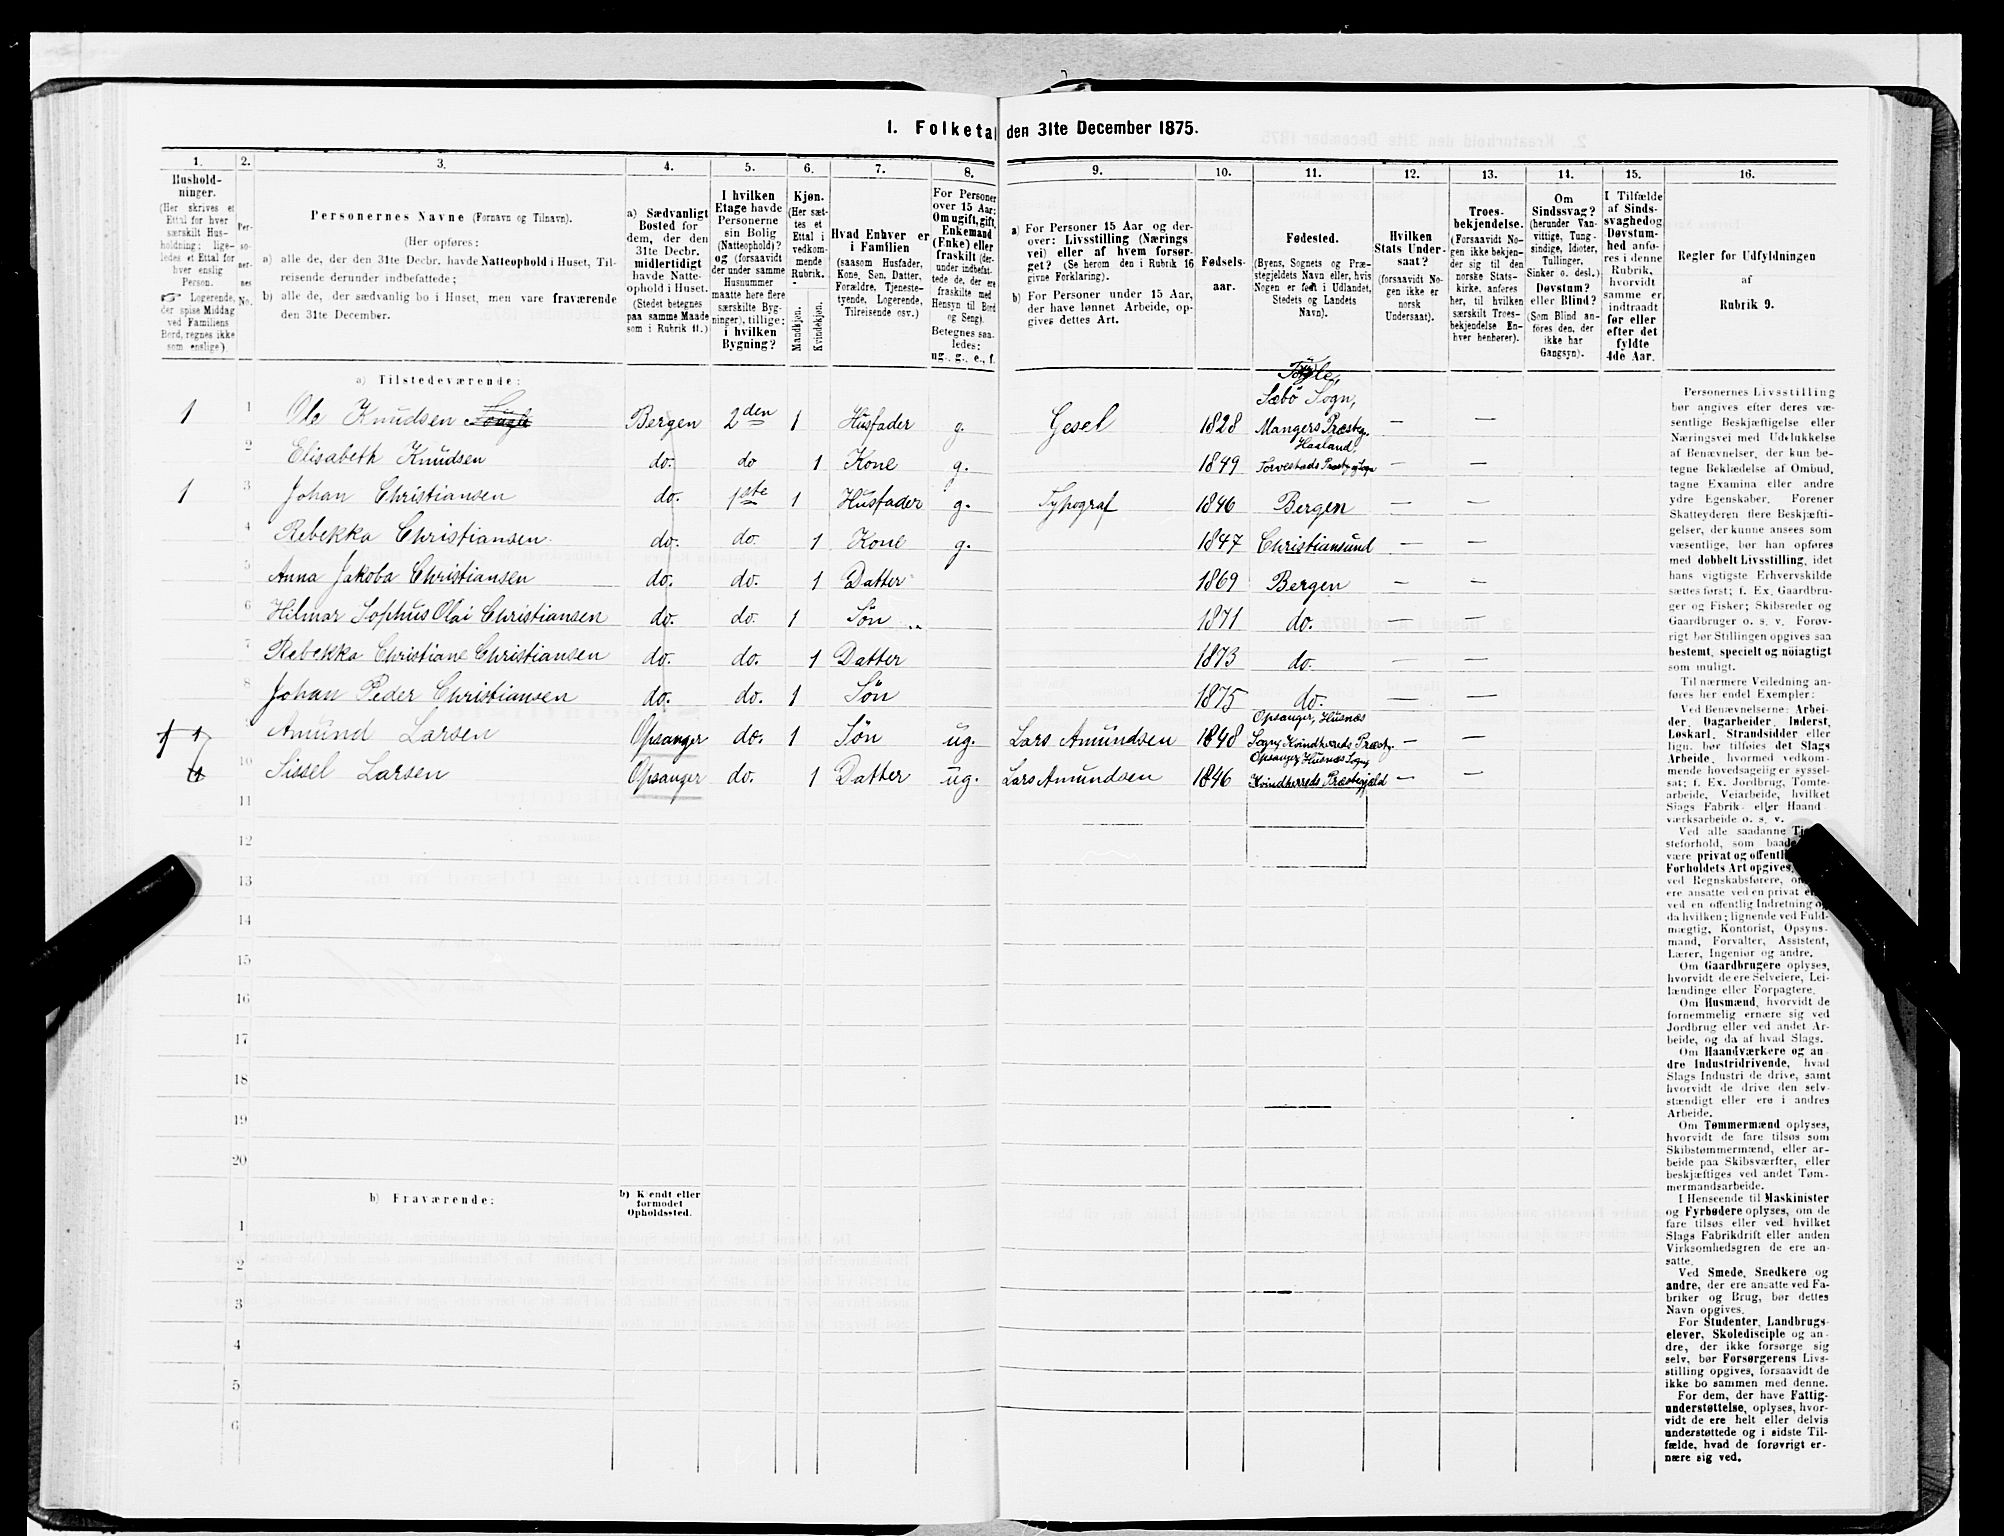 1. Folketa den 31te December 1875.
1. 2. 3. 4. 5. 6. 7. 8. 9. 10. 11. 12. 13. 14. 15. 16.
Hushold-
ninger.
(Her skrives et
Ettal for hver
særskilt Hus-
holdning; lige-
ledes et Ettal for
hver enslig
Person.
☞ Logerende,
der spise Middag
ved Familiens
Bord, regnes ikke
som enslige).
Per-
so-
ner-
nes
No.
Personernes Navne (Fornavn og Tilnavn).
(Her opføres:
a) alle de, der den 31te Decbr. havde Natteophold i Huset, Til-
reisende derunder indbefattede;
b) alle de, der sædvanlig bo i Huset, men vare fraværende
den 31te December.
a) Sædvanligt
Bosted for
dem, der den
31te Decbr.
midlertidigt
havde Natte-
ophold i Huset.
(Stedet betegnes
paa samme Maade
som i Rubrik 11.)
I hvilken
Etage havde
Personerne
sin Bolig
(Natteophold)?
og (forsaavidt
der under samme
Husnummer
maatte høre flere
særskilte Byg-
ninger), tillige:
i hvilken
Bygning?
Kjøn.
(Her sæt-
tes et
Ettal i
vedkom-
mende
Rubrik.
Mandkjøn.
Kvindekjøn.
Hvad Enhver er
i Familien
(saasom Husfader,
Kone, Søn, Datter,
Forældre, Tjeneste-
tyende, Logerende,
Tilreisende osv.)
For Personer
over 15 Aar:
Om ugift, gift,
Enkemand
(Enke) eller
fraskilt (der-
under indbefat-
tede de, der ere
fraskilte med
Hensyn til Bord
og Seng).
Betegnes saa-
ledes:
ug., g., e., f.
a) For Personer 15 Aar og der-
over: Livsstilling (Nærings
vei) eller af hvem forsør-
get? (Se herom den i Rubrik 16
givne Forklaring).
b) For Personer under 15 Aar,
der have lønnet Arbeide, op-
gives dettes Art.
Fødsels-
aar.
Fødested.
(Byens, Sognets og Præ-
stegjeldets Navn eller, hvis
Nogen er født i Udlandet,
Stedets og Landets
Navn).
Hvilken
Stats Under-
saat?
(forsaavidt No-
gen ikke er
norsk
Undersaat).
Troes-
bekjendelse.
(Forsaavidt No-
gen ikke bekjen-
der sig til den
norske Stats-
kirke, anføres
her, til hvilken
særskilt Troes-
bekjendelse En-
hver henhører).
Om
Sindssvag?
(herunder Van-
vittige, Tung-
sindige, Idioter,
Tullinger,
Sinker o. desl.)
Døvstum?
eller Blind?
(Som Blind an-
føres den, der
ikke har
Gangsyn).
I Tilfælde
af Sinds-
svaghed og
Døvstum-
hed anfø-
res i denne
Rubrik,
hvorvidt
samme er
indtraadt
før eller
efter det
fyldte
4de Aar.
Regler før Udfyldningen
af
Rubrik 9.
a) Tilstedeværende:
1 1 Ole Knudsen Bergen 2den 1 Husfader g. Gesel 1828 Sæbö Sogn, Mangers Præsteg. — —
2 Elisabeth Knudsen do. do 1 Kone g. 1849 Haaland, Torvestads Præsteg. og Sogn — —
1 3 Johan Christiansen do. 1ste 1 Husfader g. Typograf 1846 Bergen — —
4 Rebekka Christiansen do. do. 1 Kone g. 1847 Christiansund — —
5 Anna Jakoba Christiansen do. do. 1 Datter 1869 Bergen — —
6 Hilmar Sophus Olai Christiansen do. do. 1 Søn 1871 do. — —
7 Rebekka Christiane Christiansen do. do. 1 Datter 1873 do. — —
8 Johan Peder Christiansen do. do. 1 Søn 1875 do. — —
9 Amund Larsen Opsanger do. 1 Søn ug. Lars Amundsen 1848 Opsanger, Husnæs Sogn, Kvindherreds Præst. — —
10 Sissel Larsen Opsanger do. 1 Datter ug. Lars Amundsen 1846 Opsanger, Husnæs Sogn, Kvindherreds Præstegjæld — —
11
12
13
14
15
16
17
18
19
20
b) Fraværende:
b) Kjendt eller
formodet
Opholdssted.
1
2
3
4
5
6
Personernes Livsstilling
bør angives efter deres væ-
sentlige Beskjæftigelse eller
Næringsvei med Udelukkelse
af Benævnelser, der kun be-
tegne Beklædelse af Ombud,
tagne Examina eller andre
ydre Egenskaber. Forener
Skatteyderen flere Beskjæfti-
gelser, der kunne ansees som
væsentlige, bør han opføres
med dobbelt Livsstilling, idet
hans vigtigste Erhvervskilde
sættes først; f. Ex. Gaardbru-
ger og Fisker; Skibsreder og
Gaardbruger o. s. v. Forøv-
rigt bør Stillingen opgives saa
bestemt, specielt og nøiagtigt
som muligt.
Til nærmere Veiledning an-
føres her endel Exempler:
Ved Benævnelserne: Arbei-
der, Dagarbeider, Inderst,
Løskarl, Strandsidder eller
lign. bør tilføies det Slags
Arbeide, hvormed vedkom-
mende hovedsagelig er syssel-
sat; f. Ex. Jordbrug, Tomte-
arbeide, Veiarbeide, hvilket
Slags Fabrik- eller Haand-
værksarbeide o. s. v.
Ved alle saadanne
steforhold, som
være privat og
Forholdets Art opgives,
ved Regnskabsførere,
ere ansatte ved en privat
ved en offentlig Indretning
da hvilken; lignende ved Fuld-
mægtig, Kontorist, Opsyns-
mand, Forvalter, Assistent,
Lærer, Ingeniør og andre.
Om Gaardbrugere oplyses,
hvorvidt de ere Selveiere, Lei-
lændinge eller Forpagtere.
Om Husmænd, hvorvidt de
fornemmelig ernære sig ved
Jordbrug eller ved andet Ar-
beide, og da af hvad Slags.
Om Haandværkere og an-
dre Industridrivende, hvad
Slags Industri de drive, samt
hvorvidt de drive den selv-
stændigt eller ere i andres
Arbeide.
Om Tømmermænd oplyses,
hvorvidt de fare tilsøs som
Skibstømmermænd, eller ar-
beide paa Skibsværfter, eller
beskjæftiges ved andet Tøm-
mermandsarbeide.
I Henseende til Maskinister
og Fyrbødere oplyses, om de
fare tilsøs eller ved hvilket
Slags Fabrikdrift eller anden
Virksomhedsgren de ere an-
satte.
Ved Smede, Snedkere og
andre, der ere ansatte ved Fa-
briker og Brug, bør dettes
Navn opgives.
For Studenter, Landbrugs-
elever, Skoledisciple og an-
dre, der ikke forsørge sig
selv, bør Forsørgerens Livs-
stilling opgives, forsaavidt de
ikke bo sammen med denne.
For dem, der have Fattig-
understøttelse, oplyses, hvor-
vidt de ere helt eller delvis
understøttede og i sidste Til-
fælde, hvad de forøvrigt er-
nære sig ved.